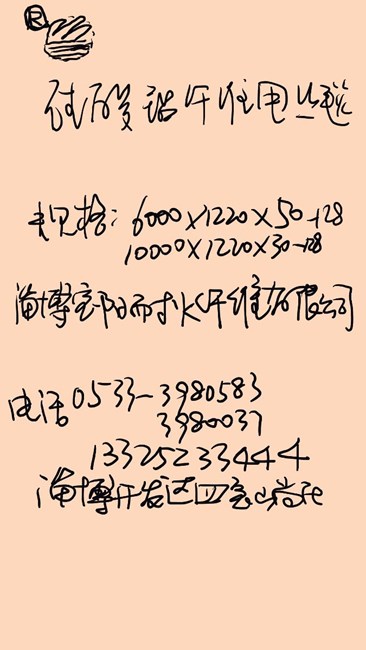 ®
硅酸铝纤维电丝毯
规格:6000×1220×50-128
10000×1220×30-128
淄博宝阳耐火纤维有限公司
电话0533-3980583
3980037
13325233444
淄博开发区四宝山